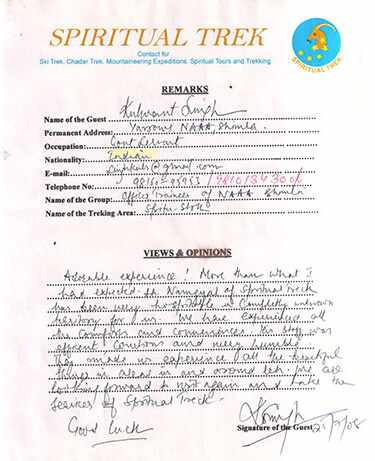 SPIRITUAL TREK
Contact for
Ski Trek, Chadar Trek, Mountaineering Expeditions, Spiritual Tours and Trekking
SPIRITUAL TREK
REMARKS
Name of the Guest Kulwant Singh
Permanent Address: Yarrows NAAA Shimla.
Occupation: Govt Servant
Nationality: Indian
E-mail: @gmail.com
Telephone No: 98160-95953 /
Name of the Group: Officer Trainees of NAAA Shimla
Name of the Treking Area: Stok
VIEWS & OPINIONS
Adorable experience! More than what I
had expected. Mr Namgyal of Spiritual Trek
has been very hospitable in completely unknown
territory for us. We have experienced all
the comforts and conveniences. His staff was
efficient, courteous and very humble
They made us experience all the beautiful
things in and around Leh. We are
looking forward to visit again and take the
services of Spiritual Trek.
Good Luck
Signature of the Guest